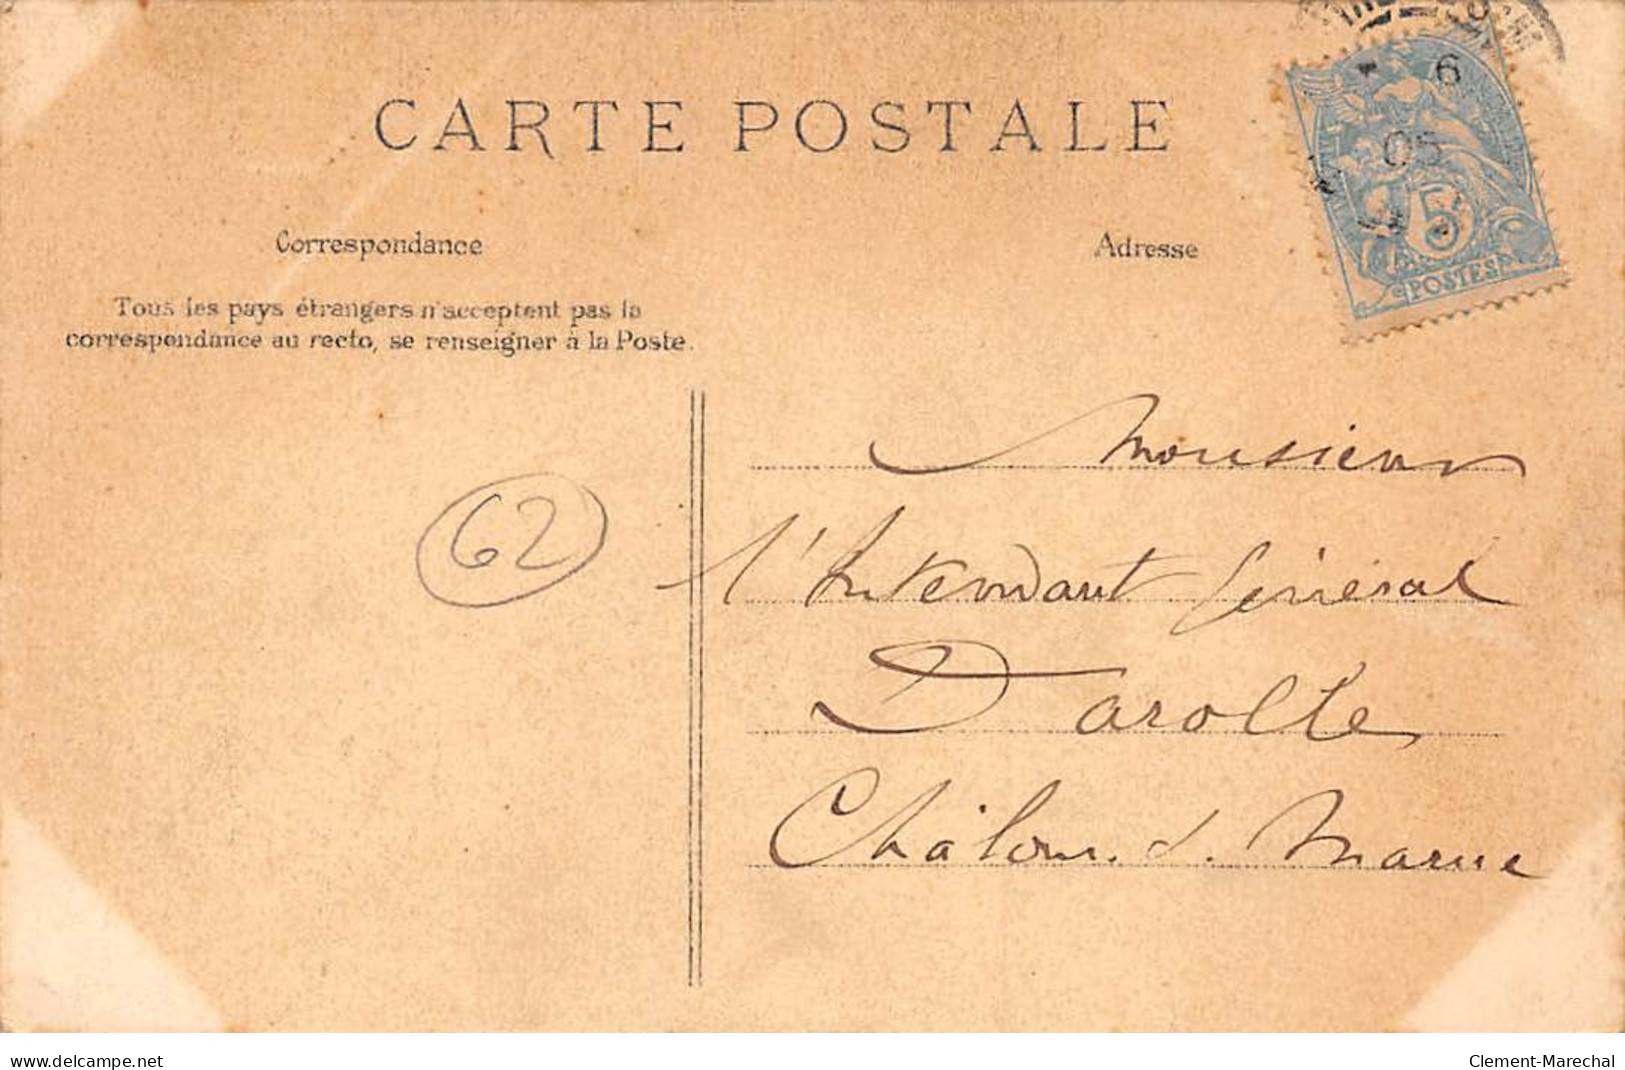 CARTE POSTALE
6
05
5
POSTES
Correspondance
Adresse
Tous les pays étrangers n'acceptent pas la
correspondance au recto, se renseigner à la Poste.
Monsieur
l'Intendant Général
Darolle
Châlons. s. Marne
62
www.delcampe.net
Clement-Marechal